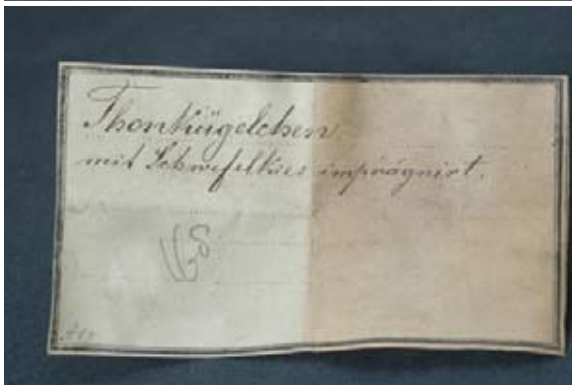 Thonkügelchen
mit Schwefelkies imprägnirt.
168